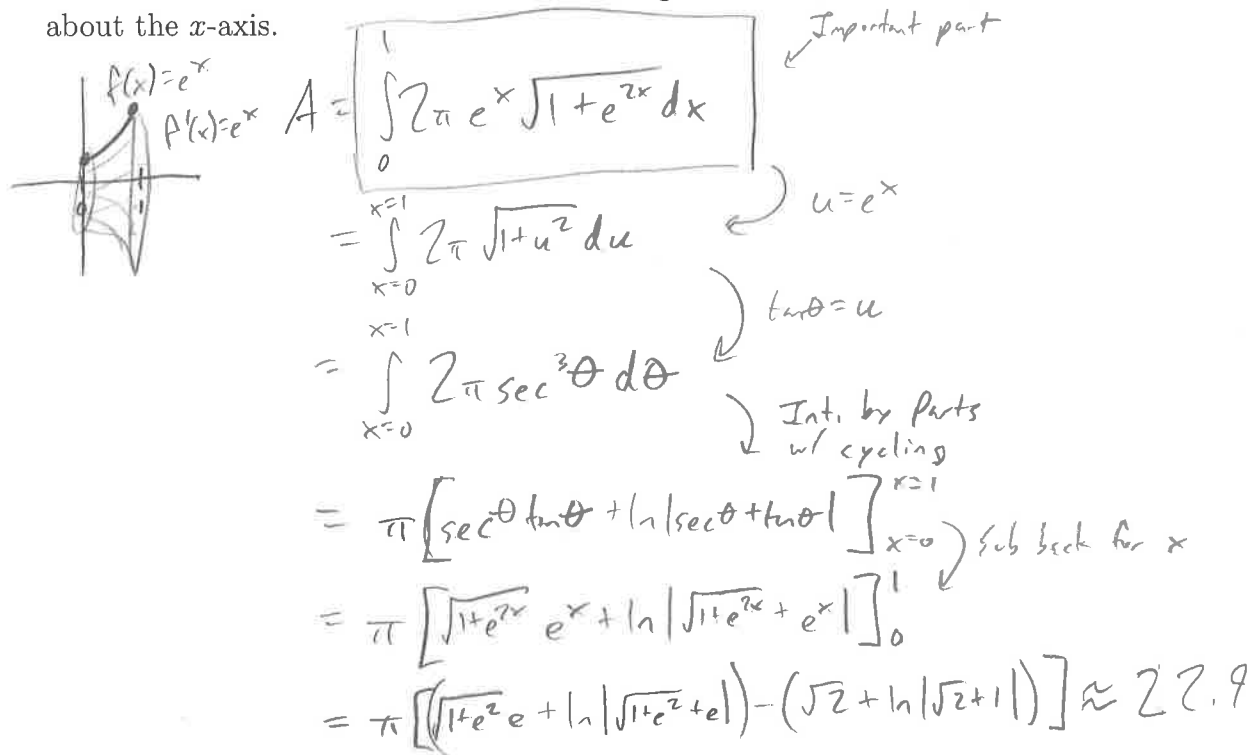 about the x-axis.
Important part
f(x)=e^x
f'(x)=e^x
A = ∫_0^1 2π e^x √(1+e^{2x}) dx
u=e^x
= ∫_{x=0}^{x=1} 2π √(1+u^2) du
tanθ=u
= ∫_{x=0}^{x=1} 2π sec^3θ dθ
Int. by Parts
w/ cycling
= π[secθ tanθ + ln|secθ+tanθ|]_{x=0}^{x=1}
sub back for x
= π[√(1+e^{2x}) e^x + ln|√(1+e^{2x}) + e^x|]_0^1
= π[(√(1+e^2) e + ln|√(1+e^2)+e|) - (√2 + ln|√2+1|)] ≈ 22.9
0
1